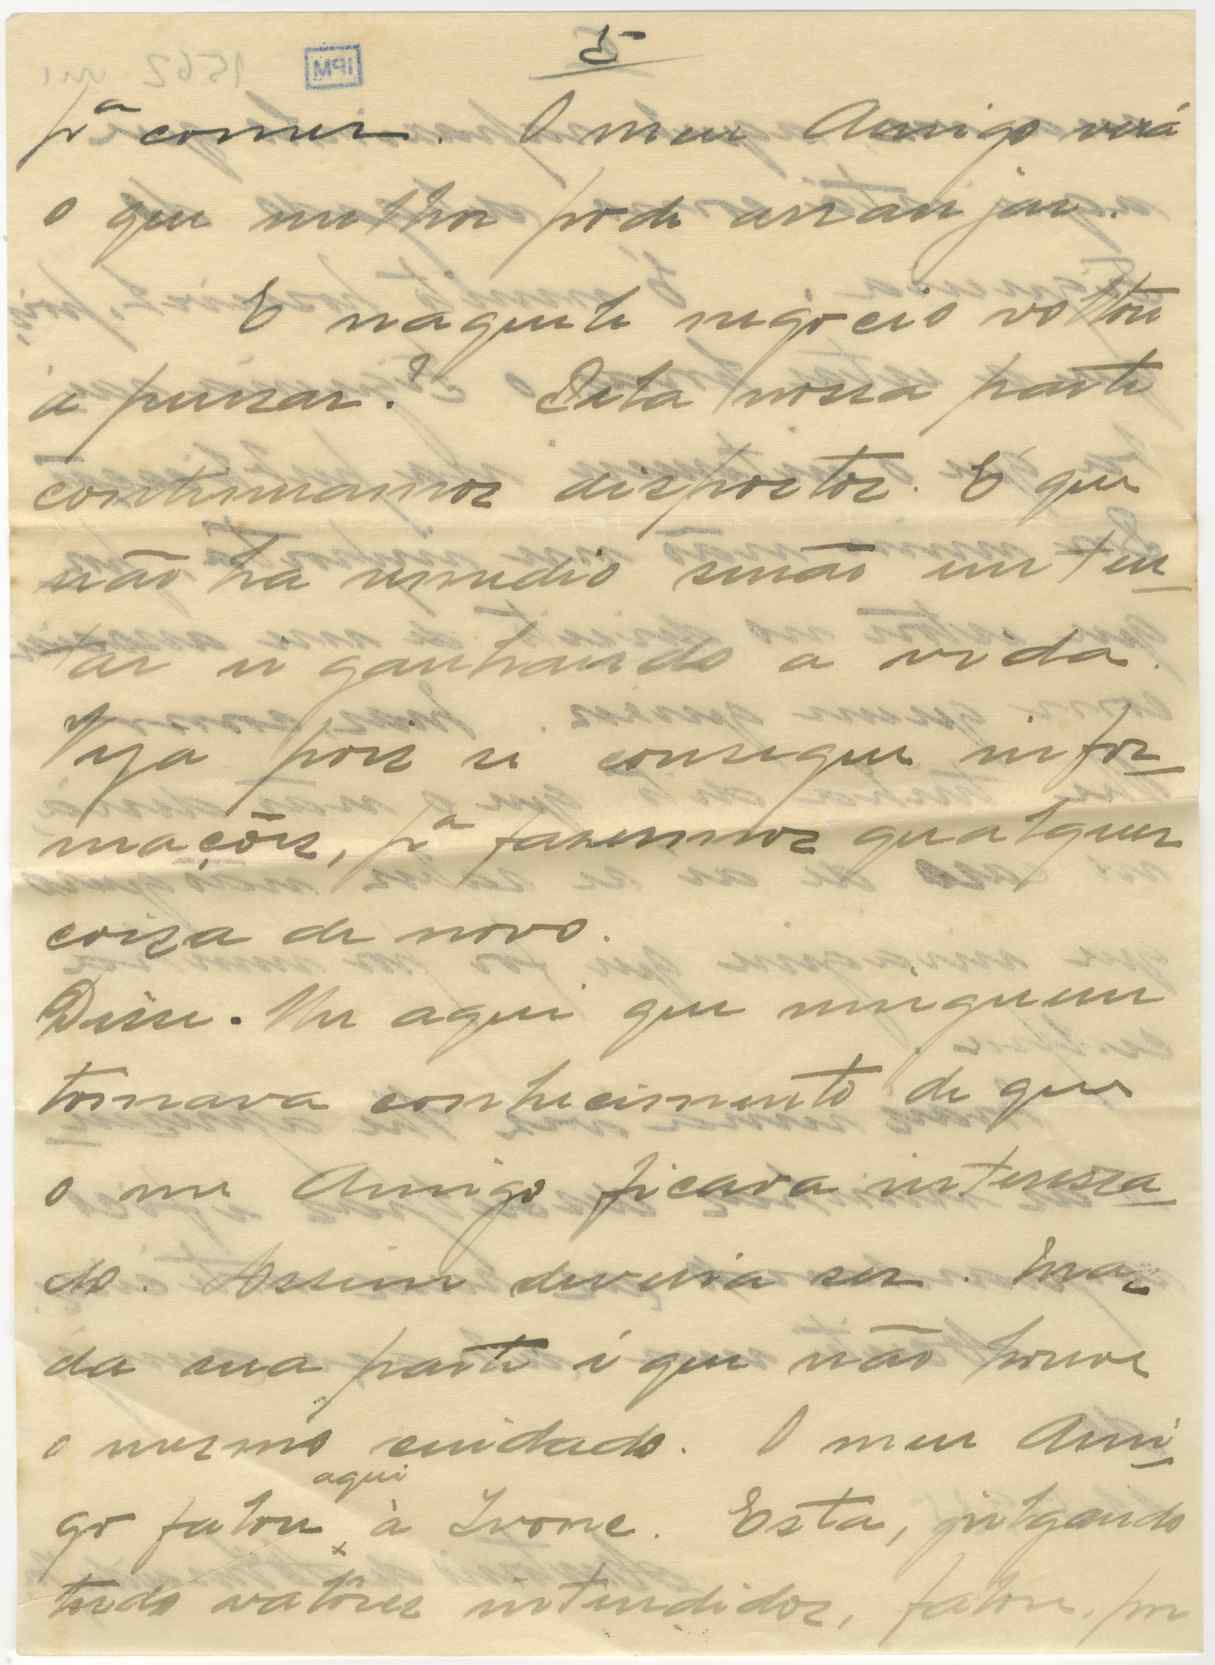 5
pª comer. O meu Amigo verá
o que melhor pode arranjar.
E naquele negócio voltou
a pensar? Pela nossa parte
continuamos dispostos. E que
não ha remedio senão ir ten-
tar ir ganhando a vida.
Veja pois se consegue infor-
mações, pª fazermos qualquer
coisa de novo.
Disse-lhe aqui que ninguem
tomava conhecimento de que
o meu Amigo ficava interessa-
do. Assim deveria ser. Mas,
da sua parte é que não houve
o mesmo cuidado. O meu Ami-
go falou aqui à Ivone. Esta, julgando
tudo valores intendidos, falou, por